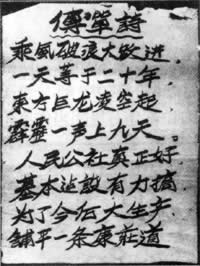 傳單詩
乘風破浪大躍进.
一天等于二十年.
東方巨龙凌空起
霹靂一声上九天.
人民公社真正好
基本建設有力搞.
为了今后大生产.
鋪平一条康莊道